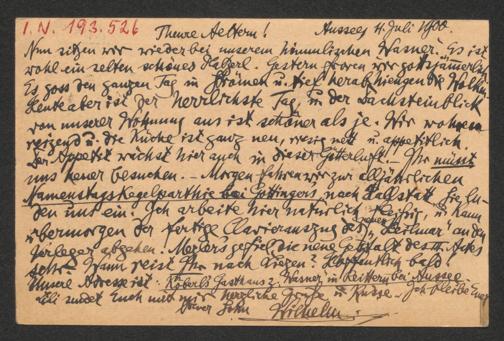 I. N. 193.526
Theure Aeltern! Aussee, 4. Juli 1900.
Nun sitzen wir wieder bei unserem himmlischen Wasner. Es ist
wohl ein selten schönes Platzerl. Gestern froren wir gottsjämmerlich.
Es goss den ganzen Tag in Strömen u. tief herab hiengen die Wolken.
Heute aber ist der herrlichste Tag, u. der Dachsteinblick
von unserer Wohnung aus ist schöner als je. Wir wohnen
reizend u. die Küche ist ganz neu, riesig nett u. appetitlich.
Der Appetit wächst hier auch in dieser Götterluft. – Ihr müsst
uns heuer besuchen. – Morgen fahren wir zwei alljährlichen
Namenstagskegelparthie bei Göttingers nach Hallstatt. Sie lu-
den uns ein. Ich arbeite hier natürlich fleissig, u. kann
übermorgen der fertige Clavierauszug des "Heilmar" an den
Verleger abgehen. Meyers gefiel die neue Gestalt des III. Actes
sehr. Wann reist Ihr nach Giezen? Hoffentlich bald!
Unsere Adresse ist: Köberls Gasthaus z. Wasner in Reittern bei Aussee.
Lili sendet Euch mit mir herzliche Grüße u. Küsse. – Ich bleibe Euer
braver Sohn Wilhelm.